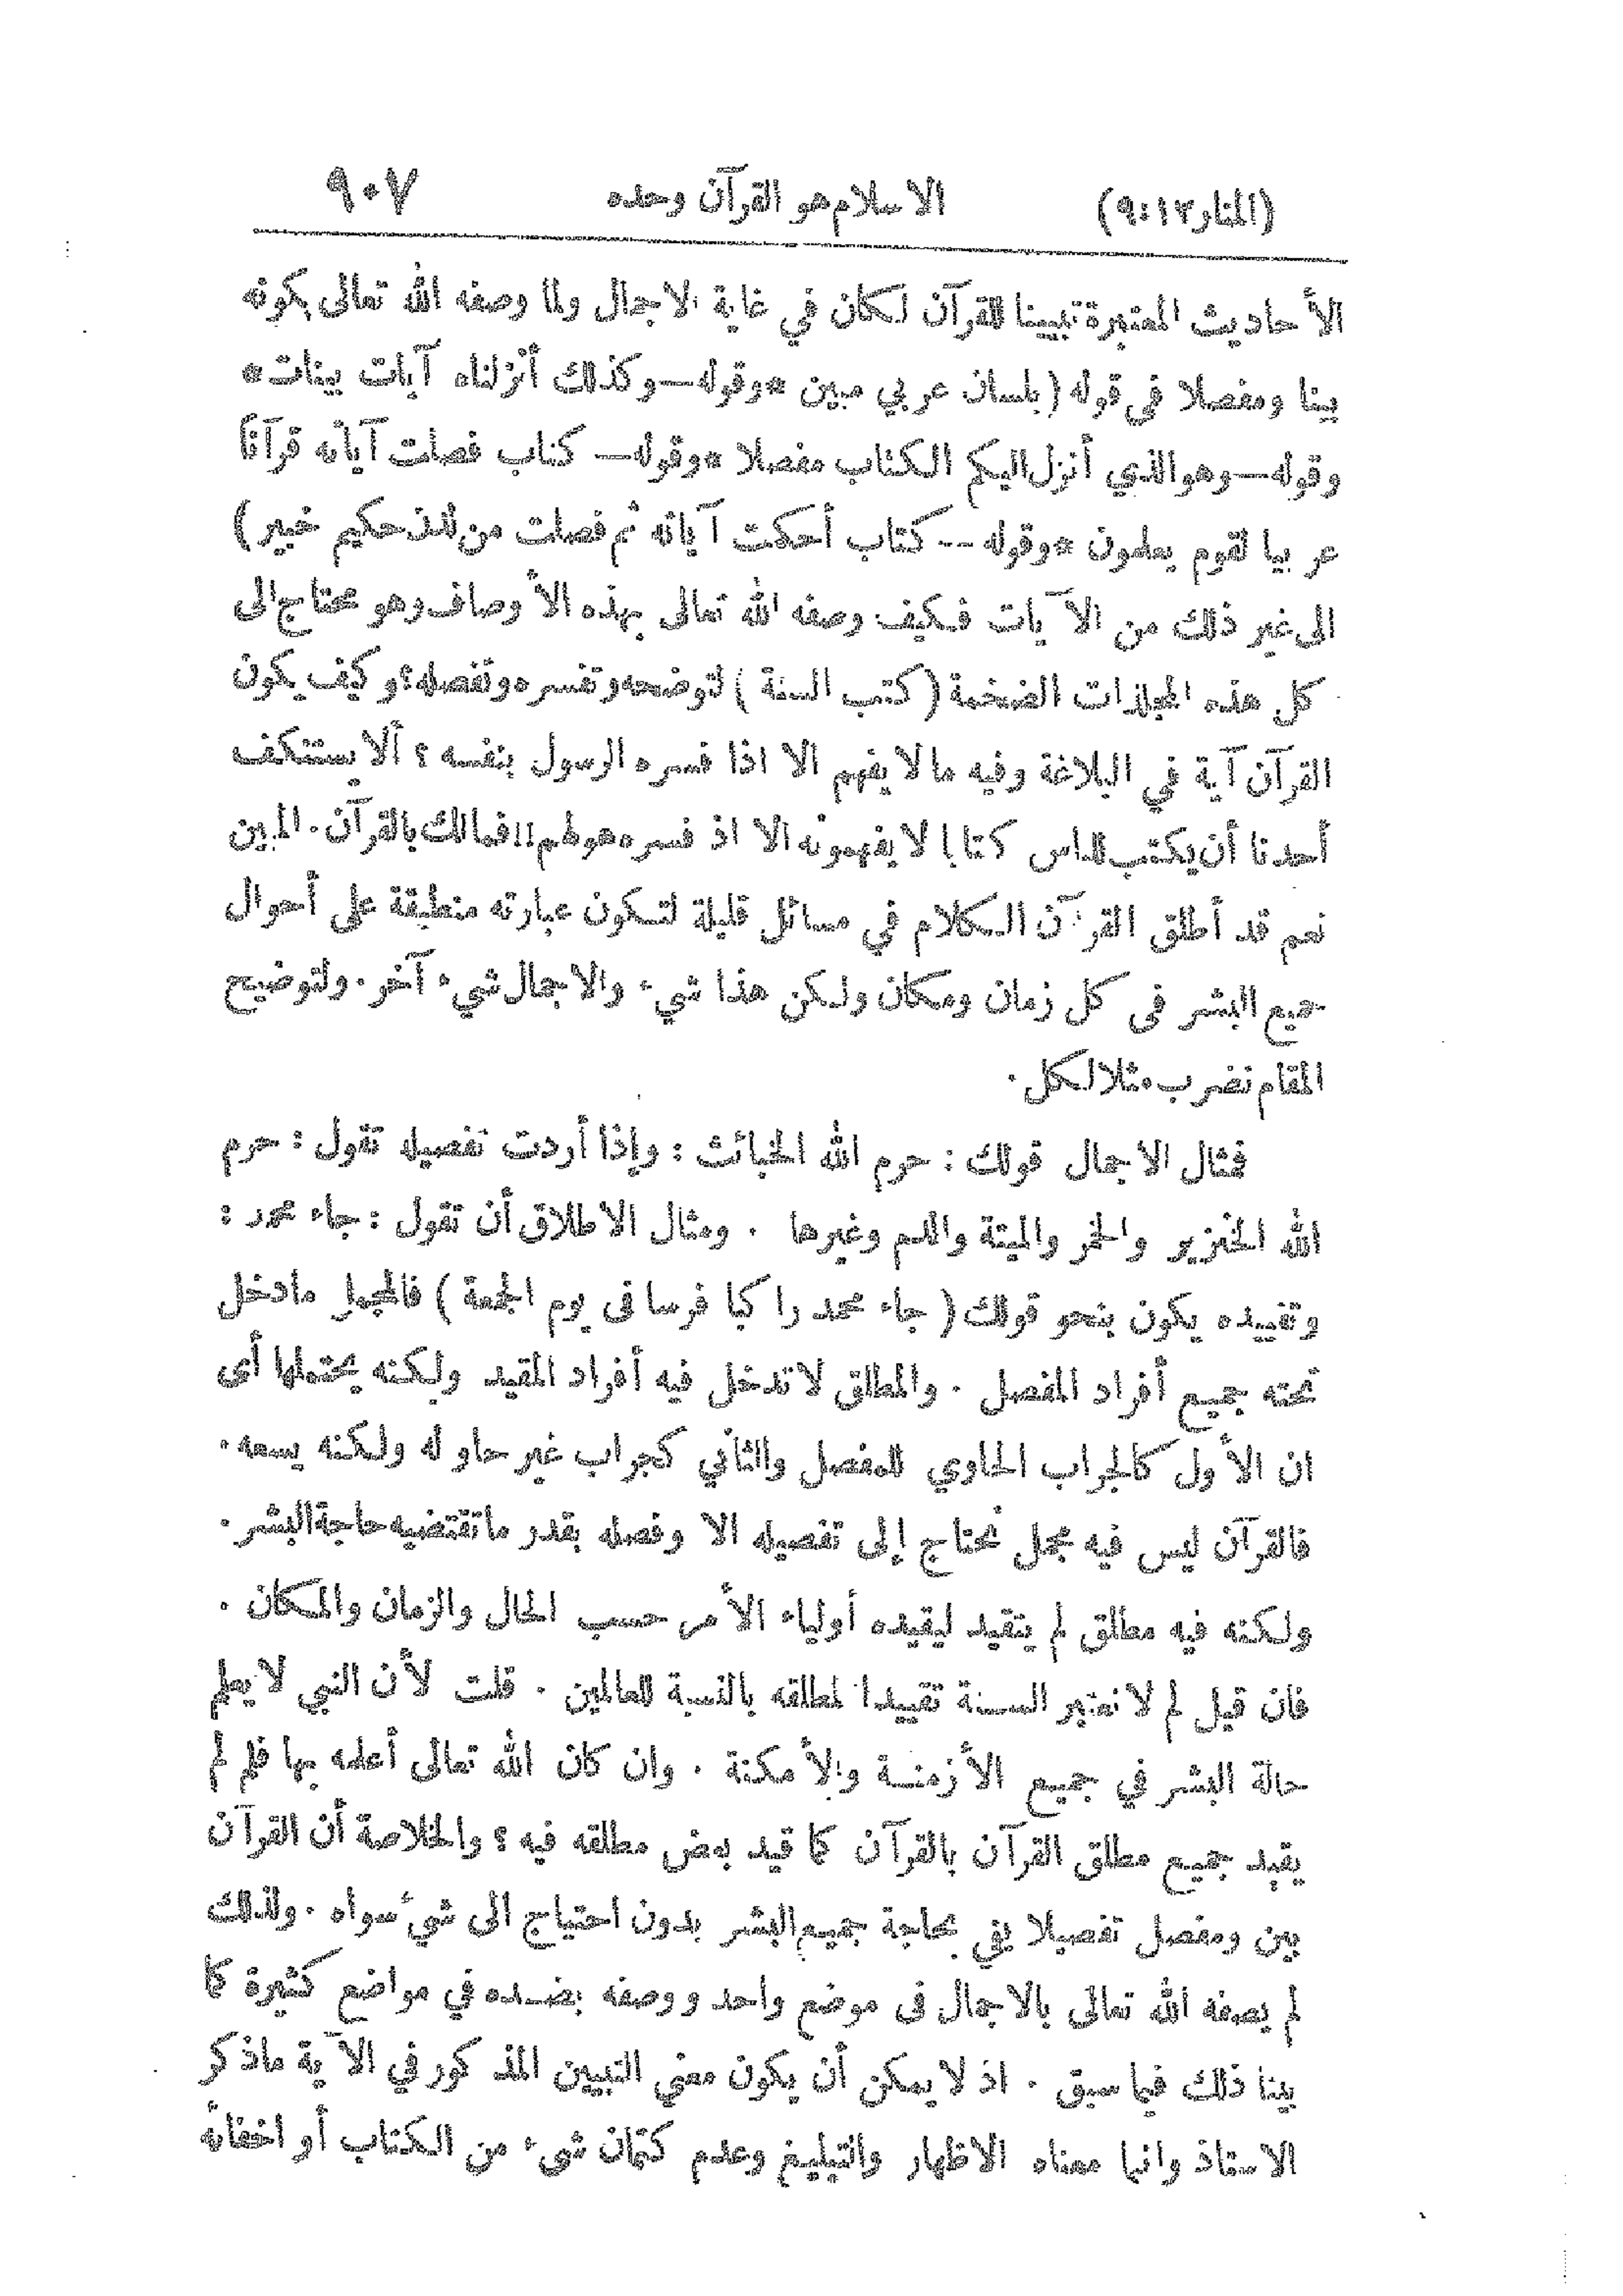 (المنار ١٢:٩) الاسلام هو القرآن وحده ٩٠٧
الأحاديث المعتبرة تبيينا للقرآن لكان في غاية الاجمال ولما وصفه الله تعالى بكونه
بينا ومفصلا في قوله (بلسان عربي مبين *وقوله—وكذلك أنزلناه آيات بينات*
وقوله—وهو الذي أنزل اليكم الكتاب مفصلا *وقوله— كتاب فصلت آياته قرآنا
عربيا لقوم يعلمون *وقوله -- كتاب أحكمت آياته ثم فصلت من لدن حكيم خبير)
الى غير ذلك من الآيات فكيف وصفه الله تعالى بهذه الأوصاف وهو محتاج الى
كل هذه المجلدات الضخمة (كتب السنة) لتوضحه وتفسره وتفصله؟ وكيف يكون
القرآن آية في البلاغة وفيه مالا يفهم الا اذا فسره الرسول بنفسه؟ ألا يستنكف
أحدنا أن يكتب للناس كتابا لا يفهمونه الا اذ فسره هو لهم!! فما لك بالقرآن. المبين
نعم قد أطلق القرآن الكلام في مسائل قليلة لتكون عبارته منطبقة على أحوال
جميع البشر فى كل زمان ومكان ولكن هذا شيء والاجمال شيء آخر. ولتوضيح
المقام نضرب مثلا لكل.
فمثال الاجمال قولك: حرم الله الخبائث: وإذا أردت تفصيله تقول: حرم
الله الخنزير والخمر والميتة والدم وغيرها. ومثال الاطلاق أن تقول: جاء محمد:
وتقييده يكون بنحو قولك (جاء محمد راكبا فرسا فى يوم الجمعة) فالمجمل مادخل
تحته جميع أفراد المفصل. والمطلق لاتدخل فيه أفراد المقيد ولكنه يحتملها أى
ان الأول كالجراب الحاوي للمفصل والثاني كجراب غير حاو له ولكنه يسعه.
فالقرآن ليس فيه مجمل نحتاج إلى تفصيله الا وفصله بقدر ماتقتضيه حاجة البشر.
ولكنه فيه مطلق لم يتقيد ليقيده أولياء الأمر حسب الحال والزمان والمكان.
فان قيل لم لا نعتبر السنة تقييدا لمطلقه بالنسبة للعالمين. قلت لأن النبي لا يعلم
حالة البشر في جميع الأزمنة والأمكنة. وان كان الله تعالى أعلمه بها فلم لم
يقيد جميع مطلق القرآن بالقرآن كما قيد بعض مطلقه فيه؟ والخلاصة أن القرآن
بين ومفصل تفصيلا يفي بحاجة جميع البشر بدون احتياج الى شيء سواه. ولذلك
لم يصفه الله تعالى بالاجمال فى موضع واحد ووصفه بضده في مواضع كثيرة كما
بينا ذلك فيما سبق. اذ لا يمكن أن يكون معني التبيين المذكور في الآية ماذكر
الاستاذ وانما معناه الاظهار والتبليغ وعدم كتمان شيء من الكتاب أو اخفائه